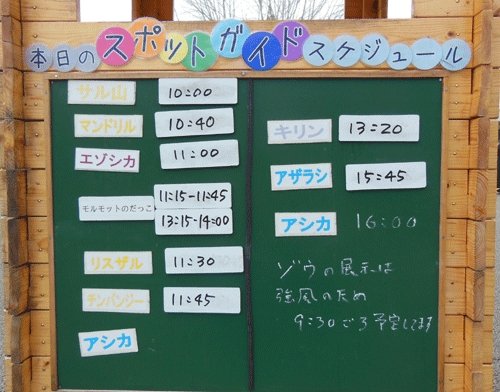 本日のスポットガイドスケジュール
サル山 10:00
マンドリル 10:40
エゾシカ 11:00
モルモットのだっこ 11:15-11:45
13:15-14:00
リスザル 11:30
チンパンジー 11:45
アシカ
キリン 13:20
アザラシ 15:45
アシカ 16:00
ゾウの展示は
強風のため
9:30ごろ予定してます